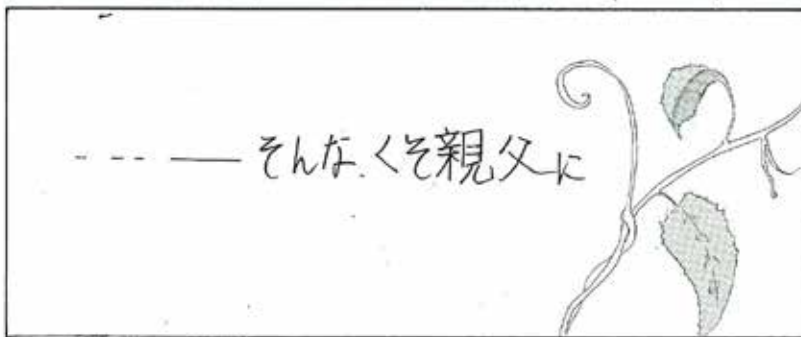 --- ――そんな、くそ親父に